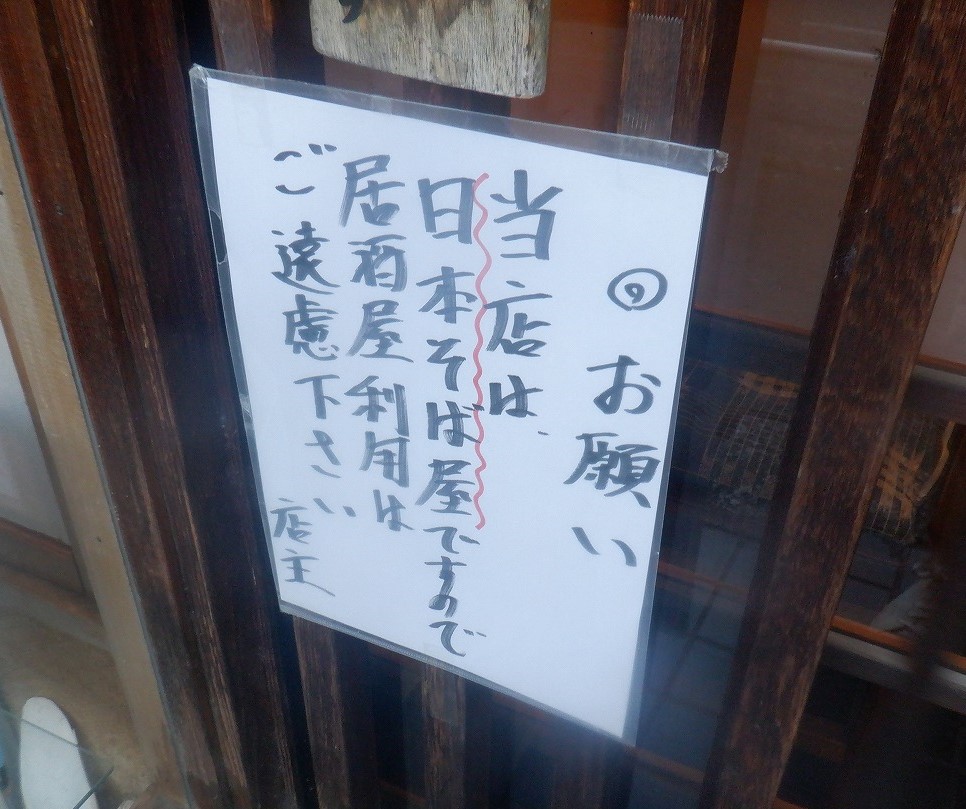 ◎ お願い
当店は、
日本そば屋ですので
居酒屋利用は
ご遠慮下さい
店主